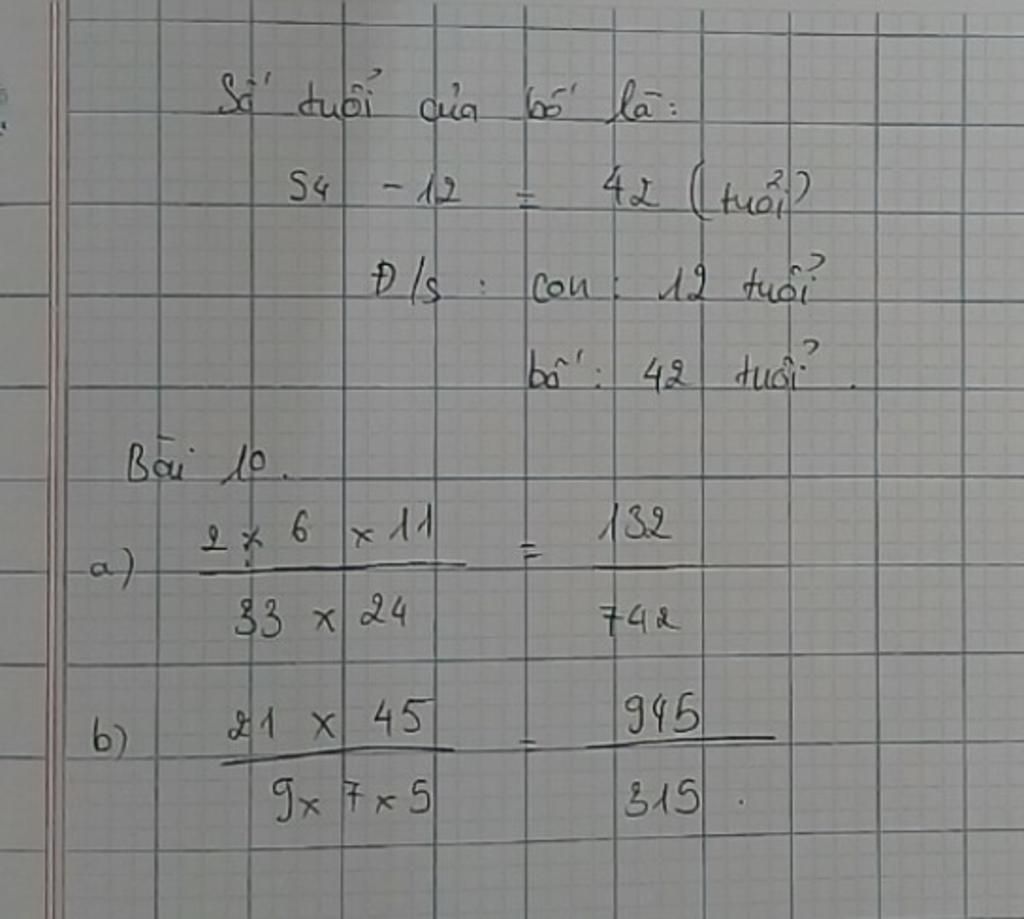 Số tuổi của bố là:
54 - 12 = 42 (tuổi)
Đ/s : con : 12 tuổi
bố : 42 tuổi .
Bài 10.
a) 2 x 6 x 11 / 33 x 24 = 132 / 742
b) 21 x 45 / 9 x 7 x 5 = 945 / 315 .